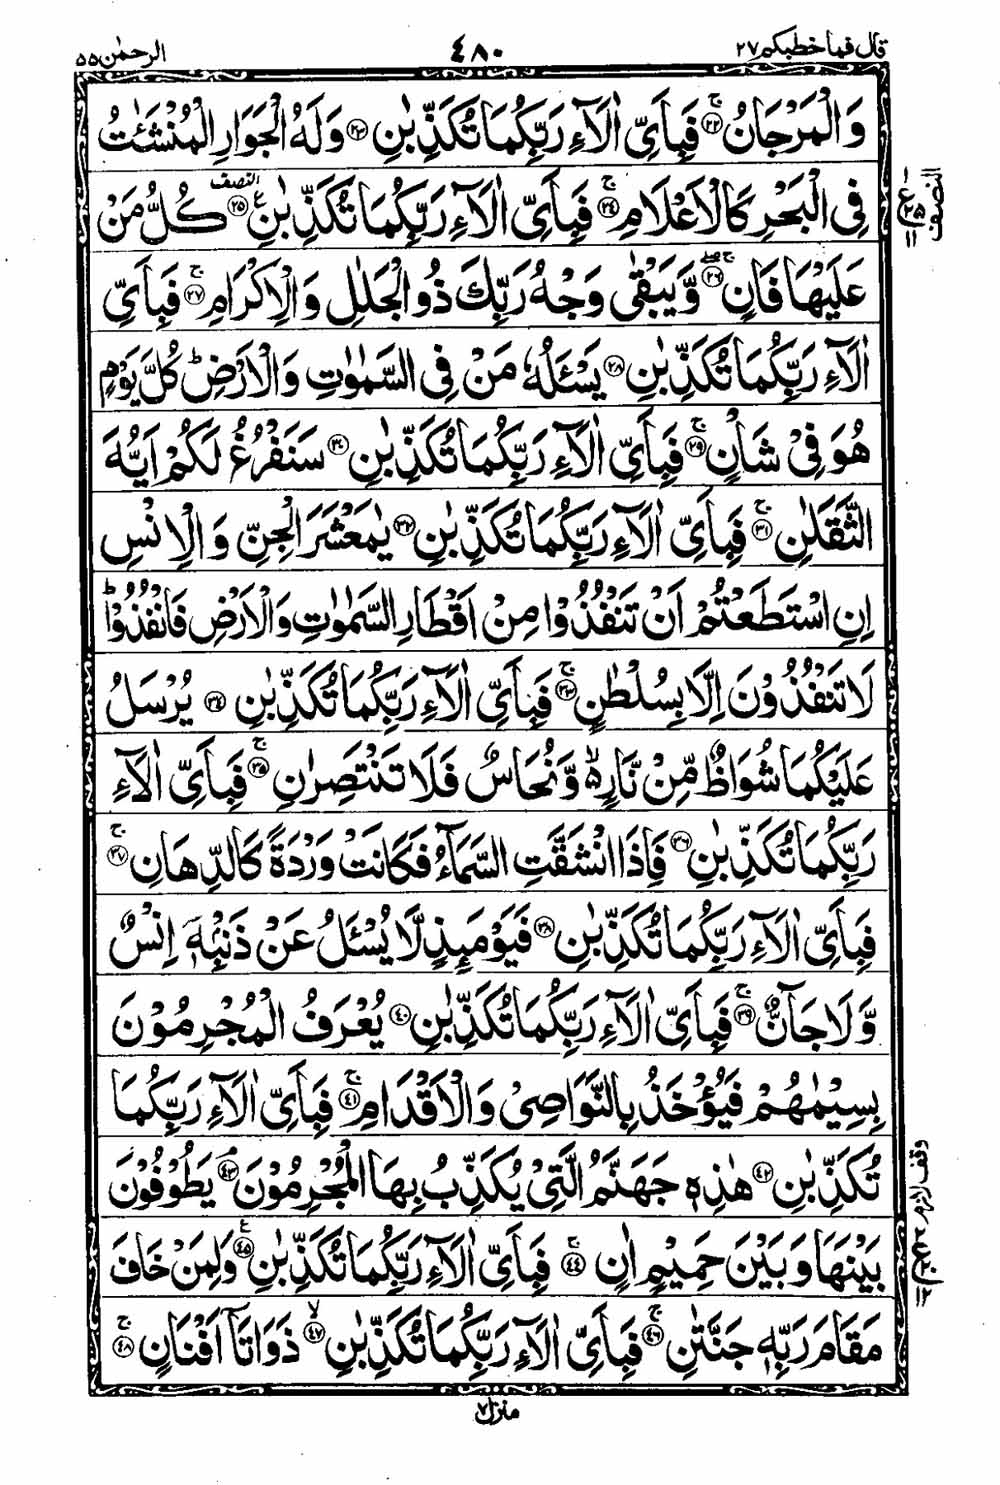 قال فما خطبكم ٢٧
٤٨٠
الرحمٰن ٥٥
وَالْمَرْجَانُ ۚ‏﴿۲۲﴾ فَبِاَىِّ اٰلَاۤءِ رَبِّكُمَا تُكَذِّبٰنِ ﴿۲۳﴾ وَلَهُ الْجَوَارِ الْمُنْشَئٰتُ
فِى الْبَحْرِ كَالْاَعْلَامِ ۚ‏﴿۲۴﴾ فَبِاَىِّ اٰلَاۤءِ رَبِّكُمَا تُكَذِّبٰنِ ﴿۲۵﴾ النصف كُلُّ مَنْ
عَلَيْهَا فَانٍ ۚۖ‏﴿۲۶﴾ وَّيَبْقٰى وَجْهُ رَبِّكَ ذُو الْجَلٰلِ وَالْاِكْرَامِ ۚ‏﴿۲۷﴾ فَبِاَىِّ
اٰلَاۤءِ رَبِّكُمَا تُكَذِّبٰنِ ﴿۲۸﴾ يَسْـَٔلُهٗ مَنْ فِى السَّمٰوٰتِ وَالْاَرْضِ ؕ كُلَّ يَوْمٍ
هُوَ فِىْ شَاْنٍ ۚ‏﴿۲۹﴾ فَبِاَىِّ اٰلَاۤءِ رَبِّكُمَا تُكَذِّبٰنِ ﴿۳۰﴾ سَنَفْرُغُ لَكُمْ اَيُّهَ
الثَّقَلٰنِ ۚ‏﴿۳۱﴾ فَبِاَىِّ اٰلَاۤءِ رَبِّكُمَا تُكَذِّبٰنِ ﴿۳۲﴾ يٰمَعْشَرَ الْجِنِّ وَالْاِنْسِ
اِنِ اسْتَطَعْتُمْ اَنْ تَنْفُذُوْا مِنْ اَقْطَارِ السَّمٰوٰتِ وَالْاَرْضِ فَانْفُذُوْا ؕ
لَا تَنْفُذُوْنَ اِلَّا بِسُلْطٰنٍ ۚ‏﴿۳۳﴾ فَبِاَىِّ اٰلَاۤءِ رَبِّكُمَا تُكَذِّبٰنِ ﴿۳۴﴾ يُرْسَلُ
عَلَيْكُمَا شُوَاظٌ مِّنْ نَّارٍ ۙ وَّنُحَاسٌ فَلَا تَنْتَصِرٰنِ ۚ‏﴿۳۵﴾ فَبِاَىِّ اٰلَاۤءِ
رَبِّكُمَا تُكَذِّبٰنِ ﴿۳۶﴾ فَاِذَا انْشَقَّتِ السَّمَآءُ فَكَانَتْ وَرْدَةً كَالدِّهَانِ ۚ‏﴿۳۷﴾
فَبِاَىِّ اٰلَاۤءِ رَبِّكُمَا تُكَذِّبٰنِ ﴿۳۸﴾ فَيَوْمَئِذٍ لَّا يُسْـَٔلُ عَنْ ذَنْۢبِهٖۤ اِنْسٌ
وَّلَا جَآنٌّ ۚ‏﴿۳۹﴾ فَبِاَىِّ اٰلَاۤءِ رَبِّكُمَا تُكَذِّبٰنِ ﴿۴۰﴾ يُعْرَفُ الْمُجْرِمُوْنَ
بِسِيْمٰهُمْ فَيُؤْخَذُ بِالنَّوَاصِىْ وَالْاَقْدَامِ ۚ‏﴿۴۱﴾ فَبِاَىِّ اٰلَاۤءِ رَبِّكُمَا
تُكَذِّبٰنِ ﴿۴۲﴾ هٰذِهٖ جَهَنَّمُ الَّتِىْ يُكَذِّبُ بِهَا الْمُجْرِمُوْنَ ۘ‏﴿۴۳﴾ يَطُوْفُوْنَ
بَيْنَهَا وَبَيْنَ حَمِيْمٍ اٰنٍ ۚ‏﴿۴۴﴾ فَبِاَىِّ اٰلَاۤءِ رَبِّكُمَا تُكَذِّبٰنِ ﴿۴۵﴾ وَلِمَنْ خَافَ
مَقَامَ رَبِّهٖ جَنَّتٰنِ ۚ‏﴿۴۶﴾ فَبِاَىِّ اٰلَاۤءِ رَبِّكُمَا تُكَذِّبٰنِ ۙ‏﴿۴۷﴾ ذَوَاتَاۤ اَفْنَانٍ ۚ‏﴿۴۸﴾
النصف
وقف لازم
منزل ٧